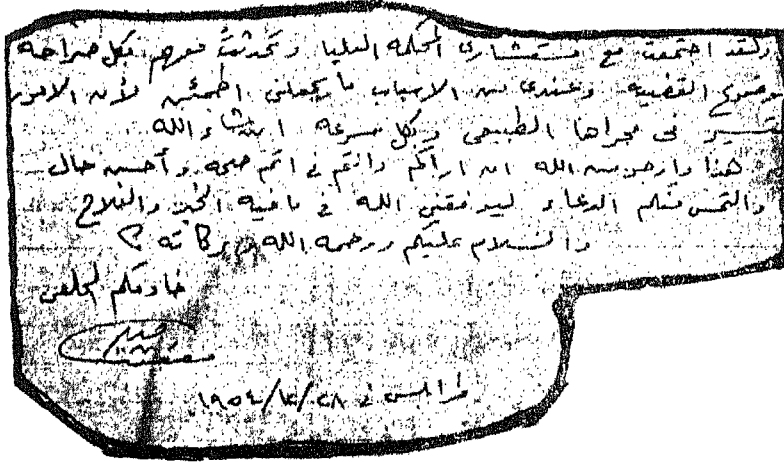 ولقد اجتمعت مع مستشارى المحكمة العليا وتحدثت معهم بكل صراحه
بموضوع القضيه وعندى من الاسباب ما يجعلنى اطمئن لأن الامور
تسير فى مجراها الطبيعى وبكل سرعه انشاء الله
هذا وارجو من الله ان اراكم وانتم فى اتم صحه وأحسن حال
والتمس منكم الدعاء ليوفقنى الله فى ما فيه الخير والفلاح
والسلام عليكم ورحمه الله وبركاته
خادمكم المخلص
طرابلس فى ١٩٥٤/١٢/٢٨